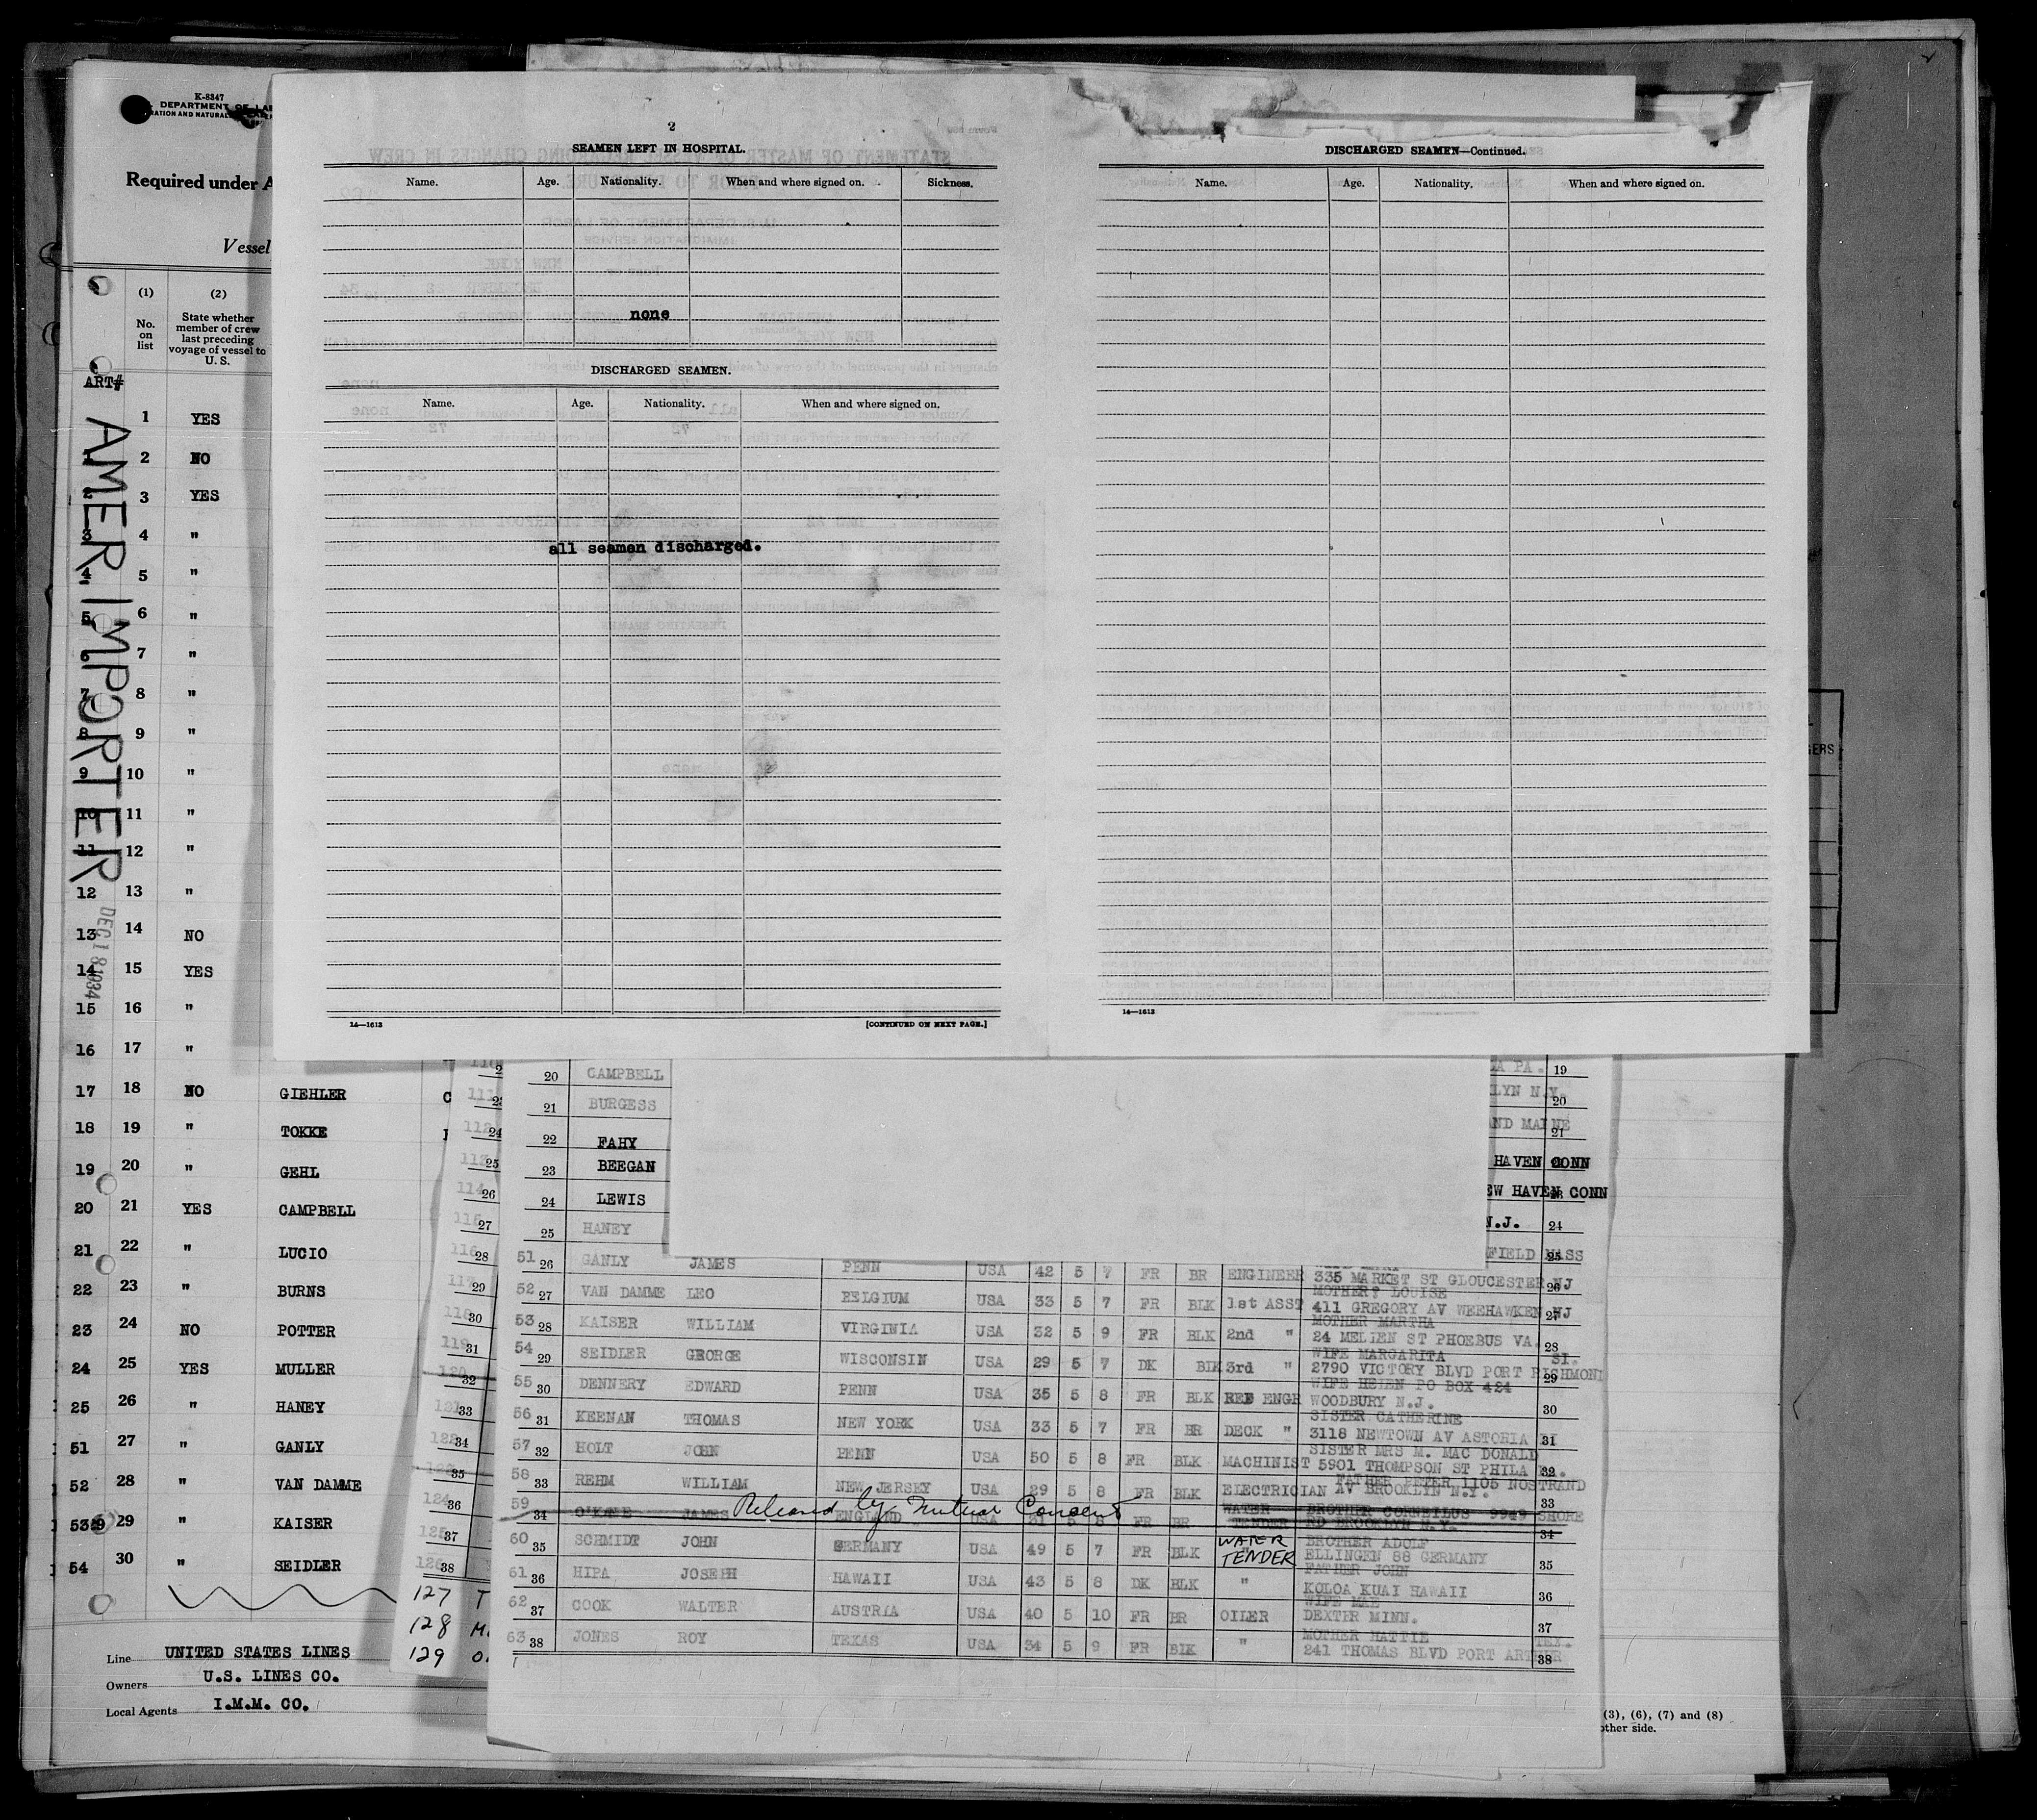 K-8347
DEPARTMENT OF LA
Required under A
Vessel
(1) (2)
No. on list
State whether member of crew last preceding voyage of vessel to U. S.
ART#
AMER IMPORTER
DEC 18 1934
1 YES
1 2 NO
2 3 YES
3 4 "
4 5 "
5 6 "
6 7 "
7 8 "
8 9 "
9 10 "
10 11 "
11 12 "
12 13 "
13 14 NO
14 15 YES
15 16 "
16 17 "
17 18 NO GIEHLER
18 19 " TOKKE
19 20 " GEHL
20 21 YES CAMPBELL
21 22 " LUCIO
22 23 " BURNS
23 24 NO POTTER
24 25 YES MULLER
25 26 " HANEY
51 27 " GANLY
52 28 " VAN DAMME
53 29 " KAISER
54 30 " SEIDLER
Line UNITED STATES LINES
Owners U.S. LINES CO.
Local Agents I.M.M. CO.
2
SEAMEN LEFT IN HOSPITAL.
Name. Age. Nationality. When and where signed on. Sickness.
none
DISCHARGED SEAMEN.
Name. Age. Nationality. When and where signed on.
all seamen discharged.
14—1613 [CONTINUED ON NEXT PAGE.]
DISCHARGED SEAMEN—Continued.
Name. Age. Nationality. When and where signed on.
14—1613
GERS
24
25
26
27
28
29
30
31
32
33
34
35
36
37
38
127 T
128 M
129 O
20 CAMPBELL PA. 19
21 BURGESS LYN N.Y. 20
22 FAHY ND MAINE 21
23 BEEGAN HAVEN CONN
24 LEWIS EW HAVEN CONN
25 HANEY N.J. 24
FIELD MASS 25
51 26 GANLY JAMES PENN USA 42 5 7 FR BR ENGINEER 335 MARKET ST GLOUCESTER NJ 26
MOTHER LOUISE
52 27 VAN DAMME LEO BELGIUM USA 33 5 7 FR BLK 1st ASST 411 GREGORY AV WEEHAWKEN NJ 27
MOTHER MARTHA
53 28 KAISER WILLIAM VIRGINIA USA 32 5 9 FR BLK 2nd " 24 MELLEN ST PHOEBUS VA. 28
WIFE MARGARITA SI.
54 29 SEIDLER GEORGE WISCONSIN USA 29 5 7 DK BLK 3rd " 2790 VICTORY BLVD PORT RICHMOND 29
WIFE HELEN PO BOX 424
55 30 DENNERY EDWARD PENN USA 35 5 8 FR BLK REF ENGR WOODBURY N.J. 30
SISTER CATHERINE
56 31 KEENAN THOMAS NEW YORK USA 33 5 7 FR BR DECK " 3118 NEWTOWN AV ASTORIA 31
SISTER MRS M. MAC DONALD
57 32 HOLT JOHN PENN USA 50 5 8 FR BLK MACHINIST 5901 THOMPSON ST PHILA 32
FATHER PETER 1105 NOSTRAND
58 33 REHM WILLIAM NEW JERSEY USA 29 5 8 FR BLK ELECTRICIAN AV BROOKLYN N.Y. 33
Released by Mutual Consent
59 34 O'KANE JAMES ENGLAND USA 31 5 8 FR BR WATER TENDER BROTHER CORNELIUS 9949 SHORE RD BROOKLYN N.Y. 34
BROTHER ADOLF
60 35 SCHMIDT JOHN GERMANY USA 49 5 7 FR BLK WATER TENDER ELLINGEN 88 GERMANY 35
FATHER JOHN
61 36 HIPA JOSEPH HAWAII USA 43 5 8 DK BLK " KOLOA KUAI HAWAII 36
WIFE MAE
62 37 COOK WALTER AUSTRIA USA 40 5 10 FR BR OILER DEXTER MINN. 37
MOTHER HATTIE TEX.
63 38 JONES ROY TEXAS USA 34 5 9 FR BLK " 241 THOMAS BLVD PORT ARTHUR 38
(3), (6), (7) and (8)
other side.